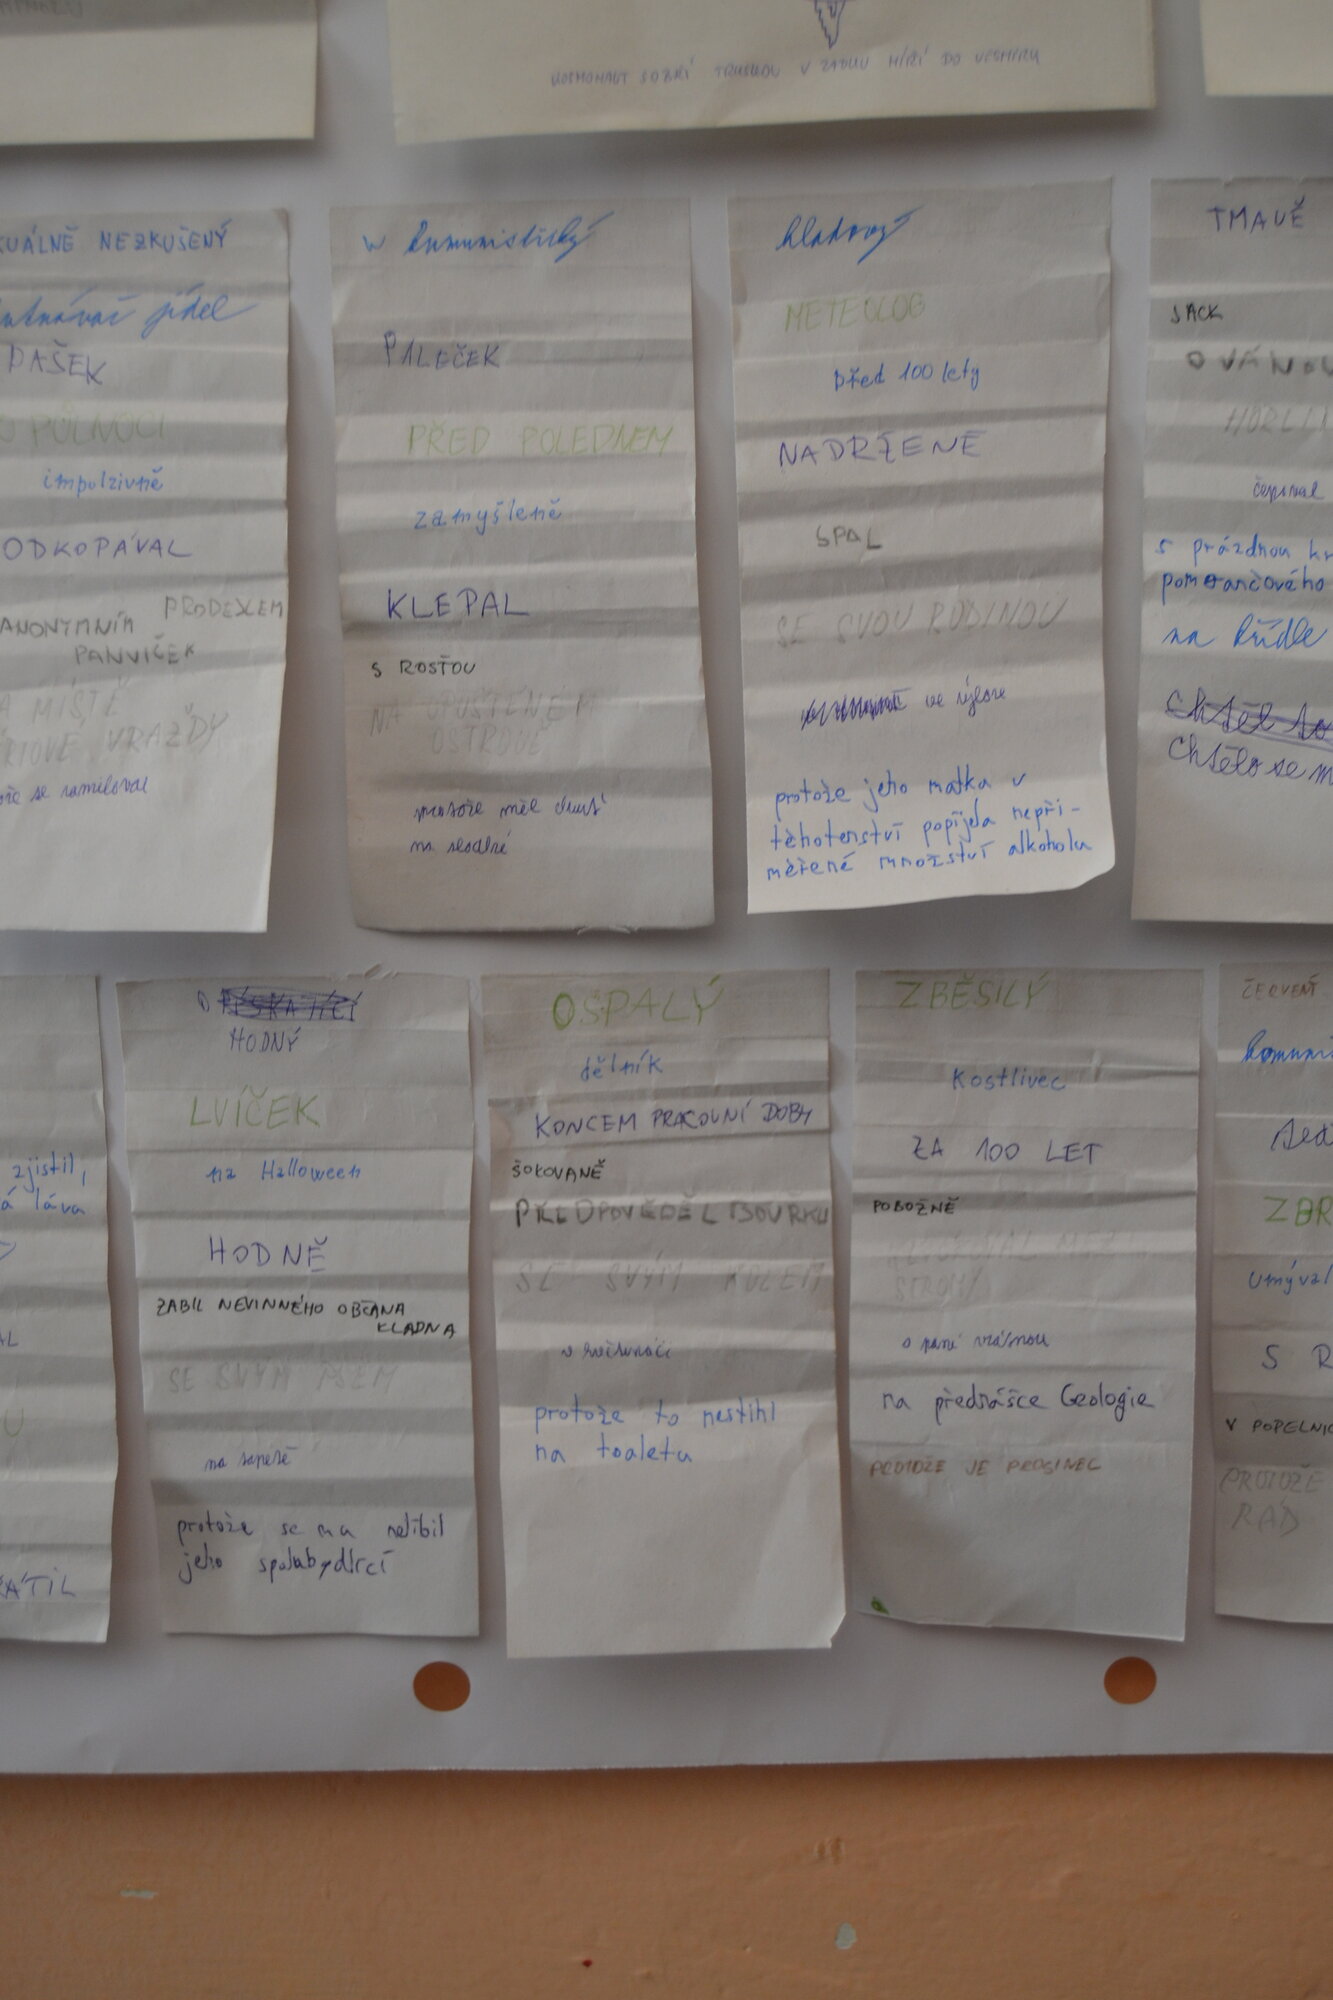 KOSMONAUT SOBKÍ TRUSKOU V ZADKU MÍŘÍ DO VESMÍRU
UÁLNĚ NEZKUŠENÝ
jídel
PAŠEK
O PŮLNOCI
impulzivně
ODKOPÁVAL
PRODEJCEM
ANONYMNÍM
PANVIČEK
MÍSTĚ
VRAŽDY
se zamiloval
komunistický
PALEČEK
PŘED POLEDNEM
zamyšleně
KLEPAL
S ROSŤOU
NA OPUŠTĚNÉM
OSTROVĚ
protože měl chuť
na sladké
hladový
METEOLOG
před 100 lety
NADRŽENĚ
SPAL
SE SVOU RODINOU
ve výloze
protože jeho matka v
těhotenství popíjela nepři-
měřené množství alkoholu
TMAVĚ
JACK
O VÁNOC
s prázdnou kr
pomerančového
na křídle
Chtělo se m
HODNÝ
LVÍČEK
na Halloween
HODNĚ
ZABIL NEVINNÉHO OBČANA
KLADNA
SE SVÝM PSEM
protože se mu nelíbil
jeho spolubydlící
OSPALÝ
dělník
KONCEM PRACOVNÍ DOBY
ŠOKOVANĚ
PŘEDPOVĚDĚL BOUŘKU
SE SVÝM KOLEM
protože to nestihl
na toaletu
ZBĚSILÝ
Kostlivec
ZA 100 LET
POBOŽNĚ
STROMY
na přednášce Geologie
PROTOŽE JE PROSINEC
zjistil,
á láva
ÁTIL
ČERVENÝ
ZBR
umýval
S R
V POPELNIC
PROTOŽE
RÁD